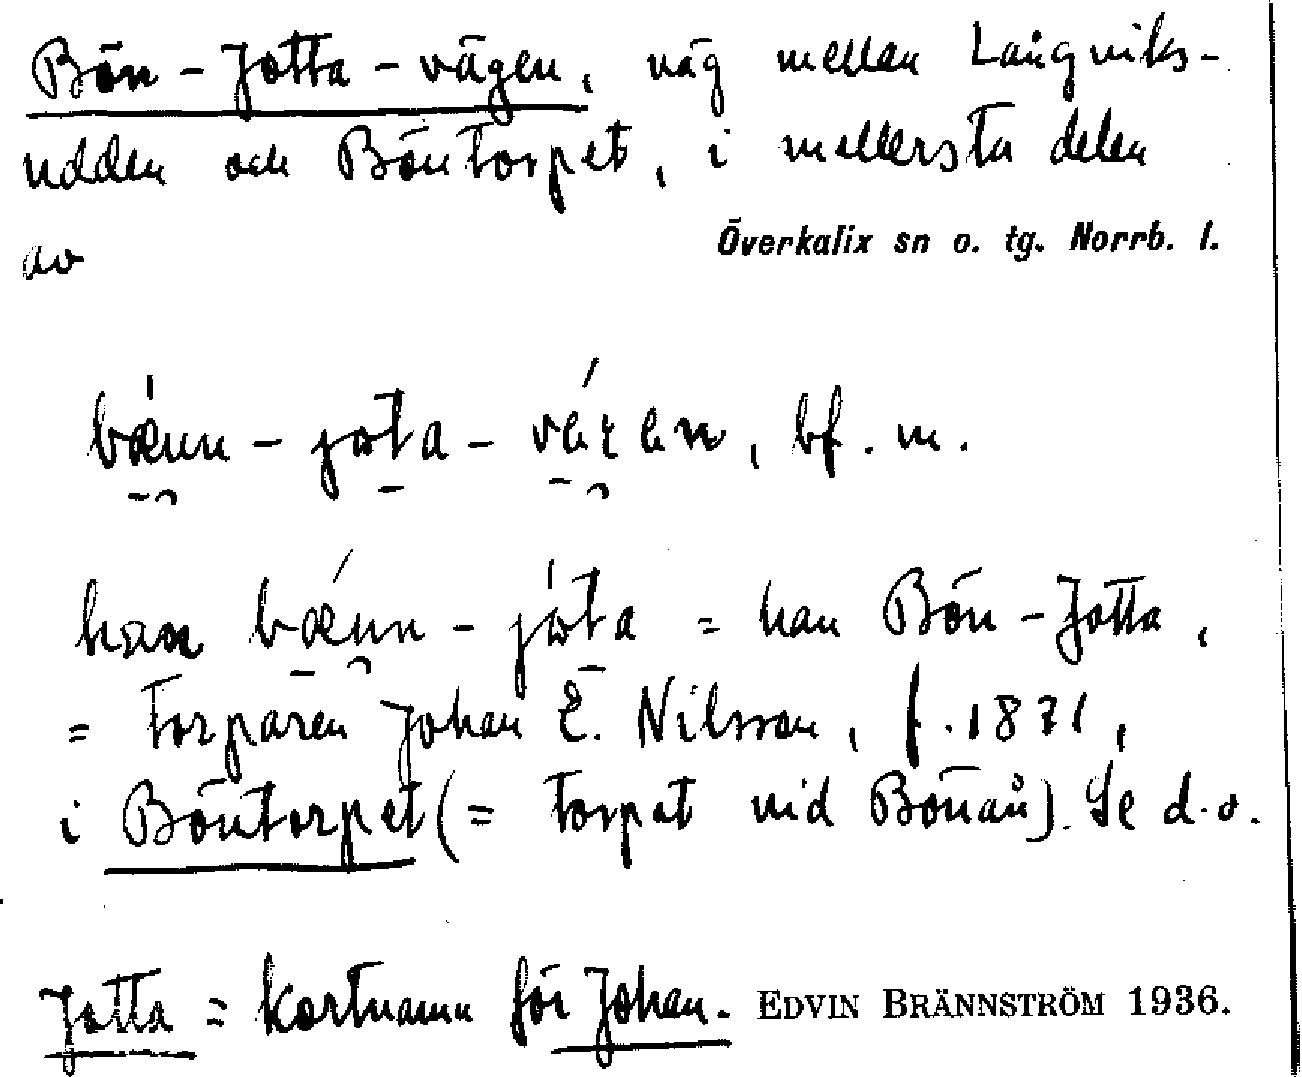 Bön-Jotta-vägen, väg mellan Långviks-
udden och Böntorpet, i mellersta delen
av Överkalix sn o. tg. Norrb. l.
bænn-jota-vägen, bf. m.
han bænn-jota = han Bön-Jotta,
= torparen Johan E. Nilsson, f. 1871,
i Böntorpet (= torpet vid Bönån). Se d.o.
Jotta = kortnamn för Johan. EDVIN BRÄNNSTRÖM 1936.